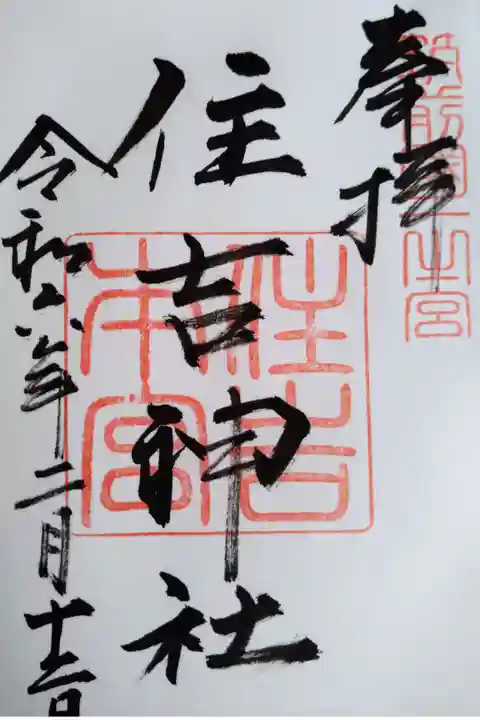 奉拝
筑前國一之宮
住吉神社
住吉本宮
令和六年二月十三日